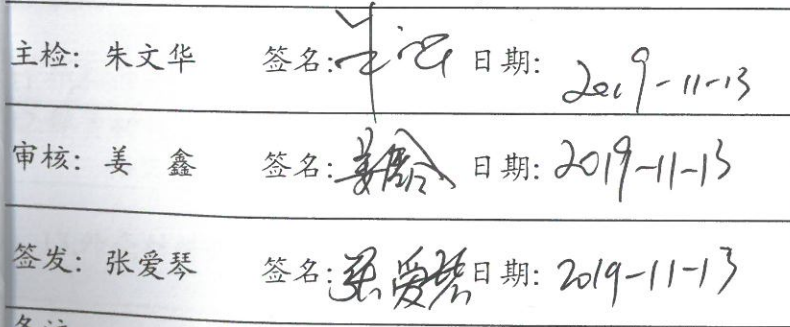 主检: 朱文华 签名: 日期: 2019-11-13
审核: 姜 鑫 签名: 日期: 2019-11-13
签发: 张爱琴 签名: 张爱琴 日期: 2019-11-13